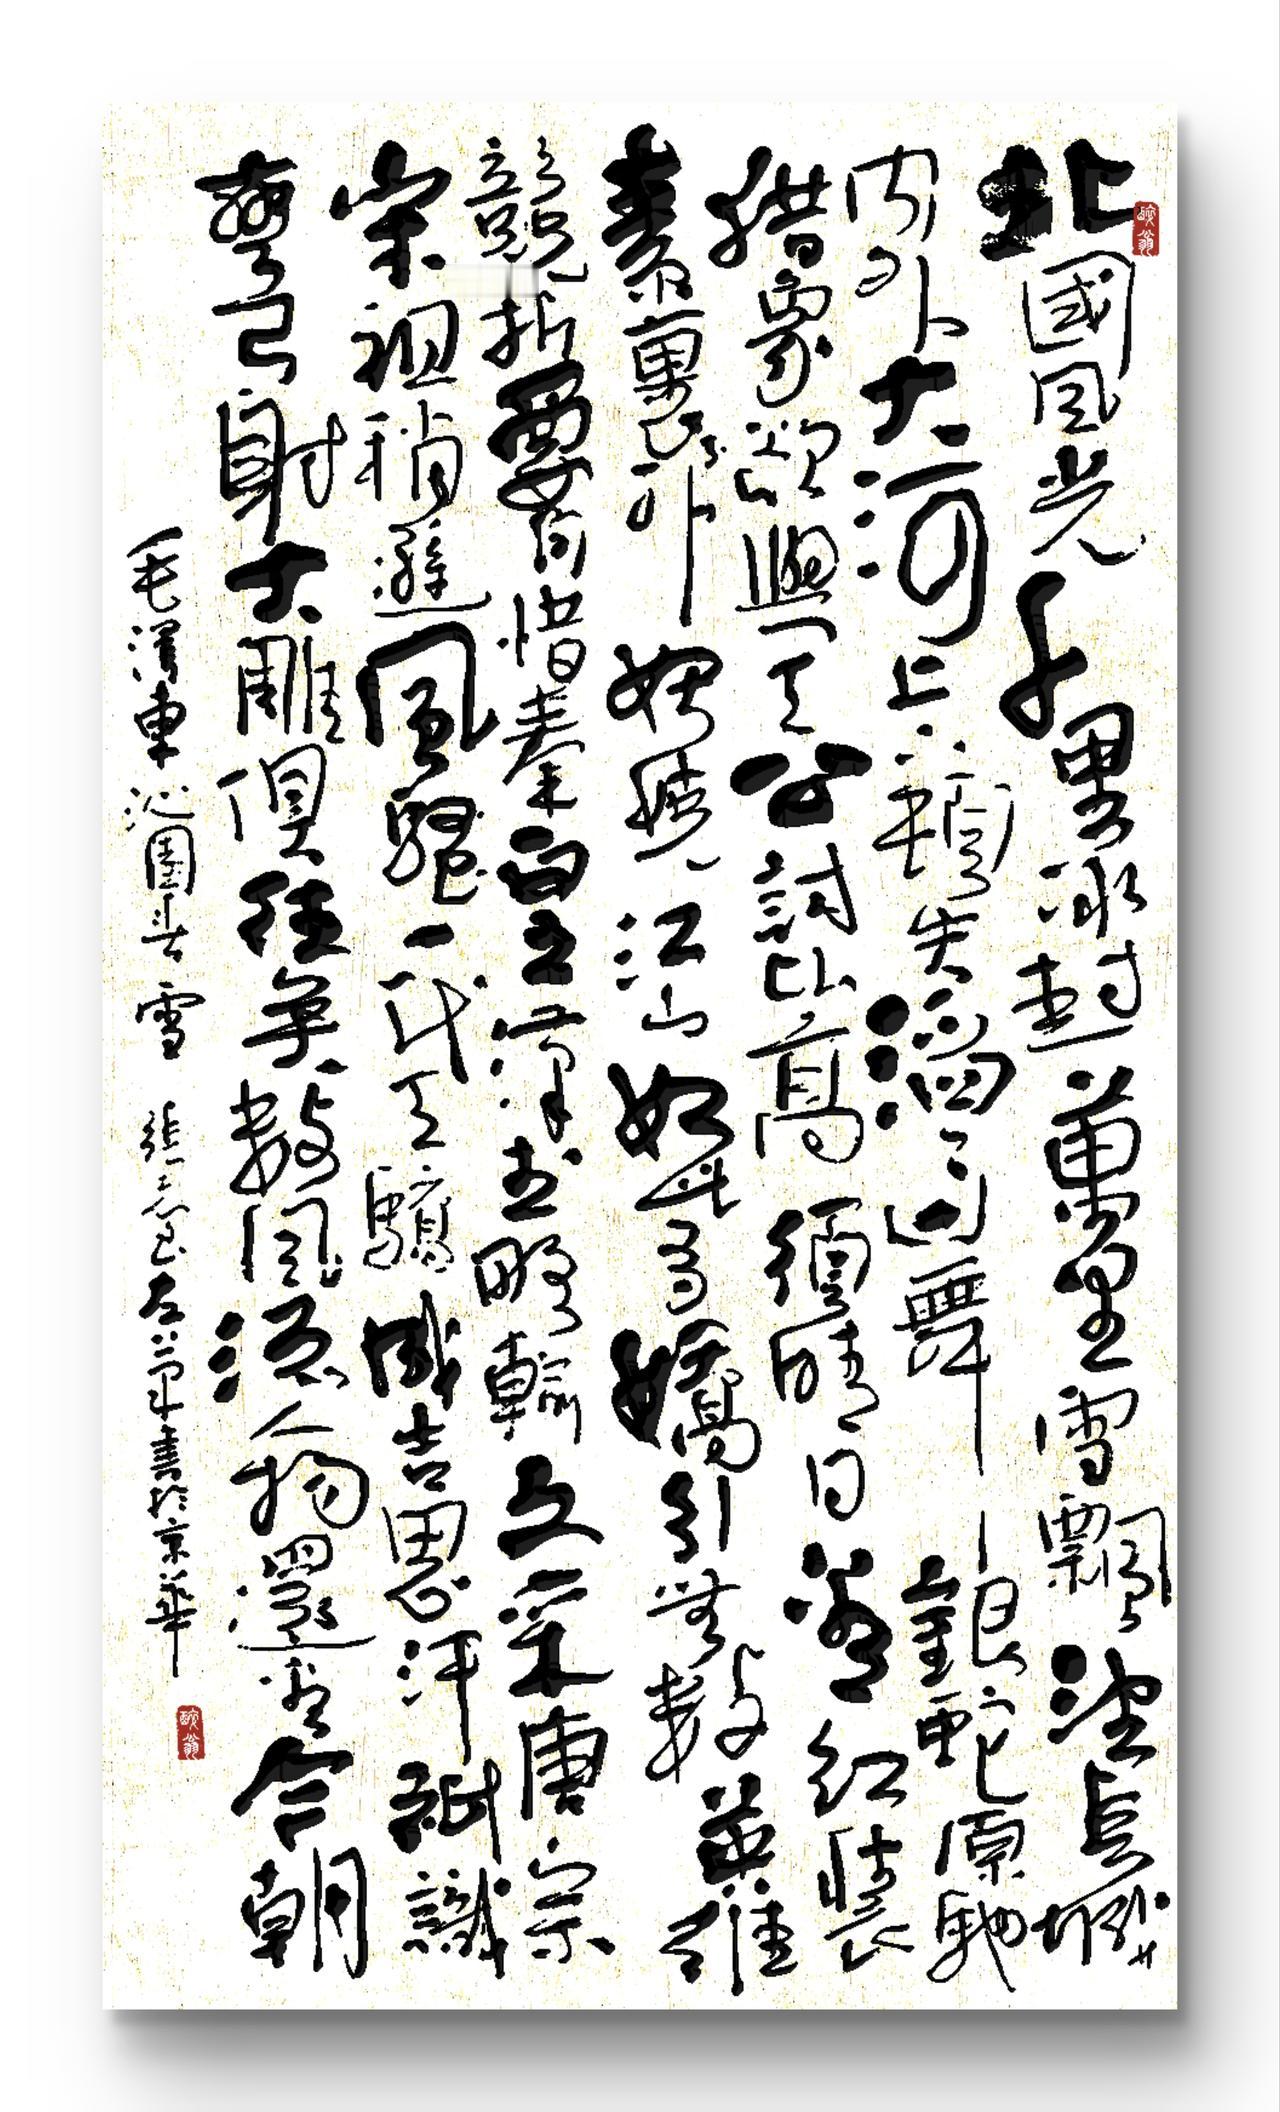 北國風光千里冰封萬里雪飄望長城
內外大河上下頓失滔滔山舞銀蛇原馳
蠟象欲與天公試比高須晴日看紅裝
素裹分外妖嬈江山如此多嬌引無數英雄
競折腰惜秦皇漢武略輸文采唐宗
宋祖稍遜風騷一代天驕成吉思汗祗識
彎弓射大雕俱往矣數風流人物還看今朝
毛澤東沁園春雪 張志左筆書於京華
醉翁
醉翁